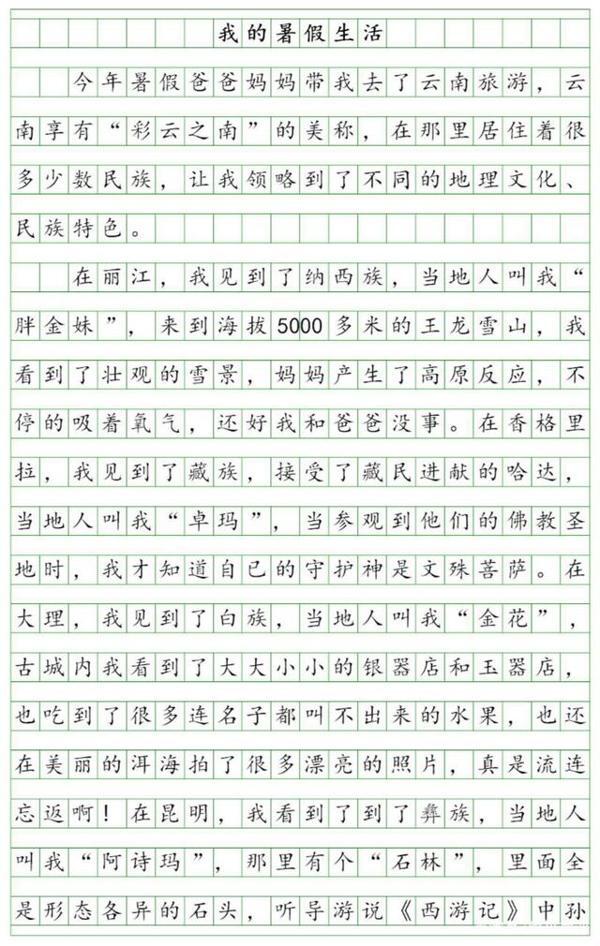 我的暑假生活
今年暑假爸爸妈妈带我去了云南旅游，云
南享有“彩云之南”的美称，在那里居住着很
多少数民族，让我领略到了不同的地理文化、
民族特色。
在丽江，我见到了纳西族，当地人叫我“
胖金妹”，来到海拔5000多米的王龙雪山，我
看到了壮观的雪景，妈妈产生了高原反应，不
停的吸着氧气，还好我和爸爸没事。在香格里
拉，我见到了藏族，接受了藏民进献的哈达，
当地人叫我“卓玛”，当参观到他们的佛教圣
地时，我才知道自已的守护神是文殊菩萨。在
大理，我见到了白族，当地人叫我“金花”，
古城内我看到了大大小小的银器店和玉器店，
也吃到了很多连名子都叫不出来的水果，也还
在美丽的洱海拍了很多漂亮的照片，真是流连
忘返啊！在昆明，我看到了到了彝族，当地人
叫我“阿诗玛”，那里有个“石林”，里面全
是形态各异的石头，听导游说《西游记》中孙